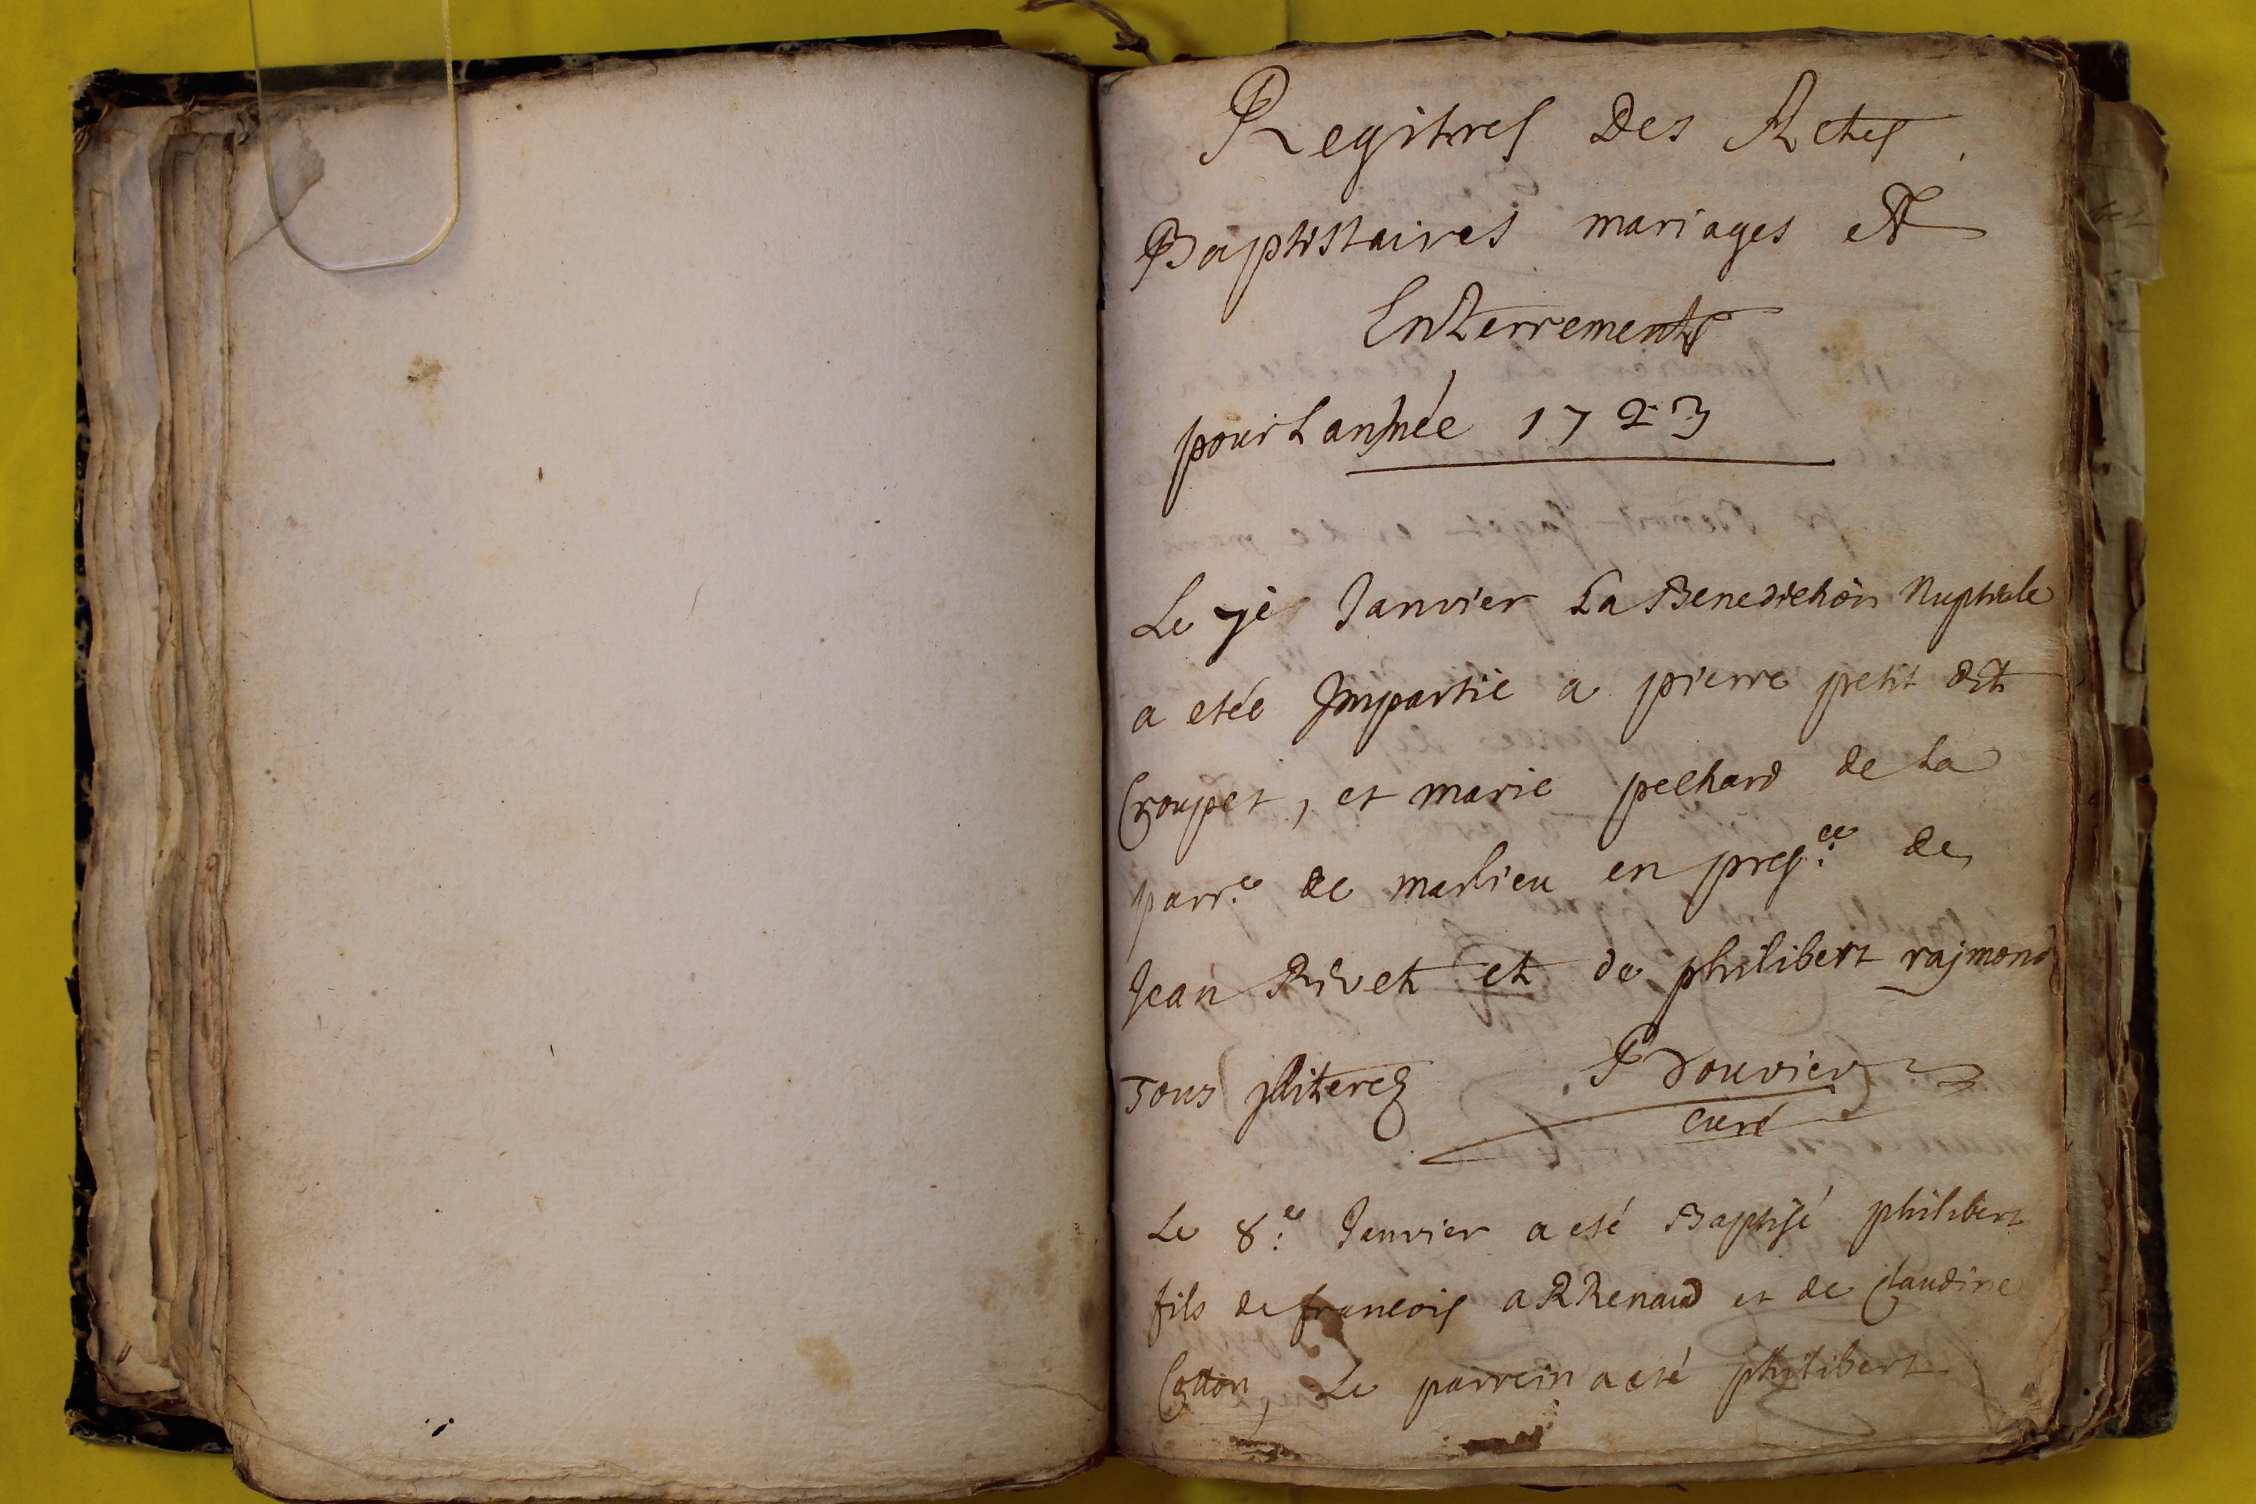 Regitres Des Actes
Baptistaires mariages et
Enterrements
pour Lannée 1723
Le 7e Janvier La Benediction Nuptiale
a etée Impartie a pierre petit dit
Croupet, et marie pechard de La
parr.e de marlieu en pres.ce de
Jean Rivet et de philibert rajmond
Tous illiterez P Douvier
curé
Le 8.e Janvier a eté Baptisé philibert
fils de francois aRRenaud et de Claudine
Cotton, Le parrein a eté philibert